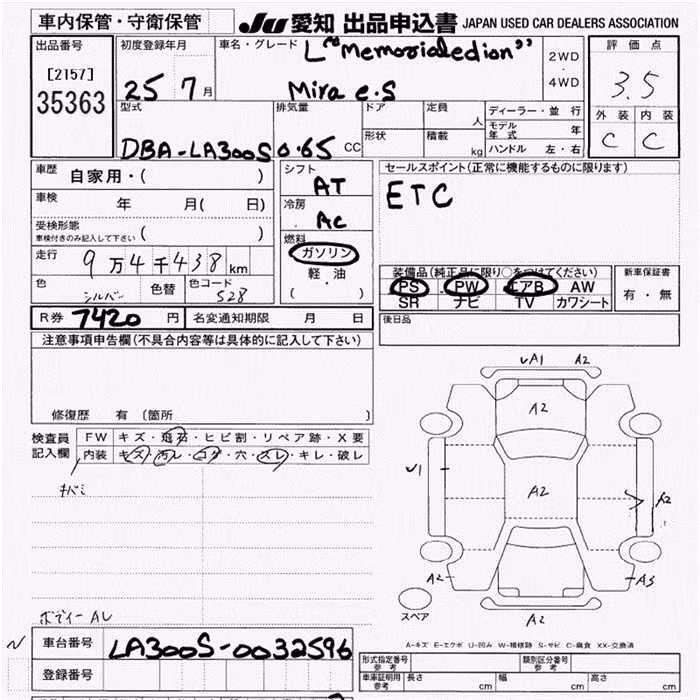 車内保管・守衛保管
JU 愛知 出品申込書 JAPAN USED CAR DEALERS ASSOCIATION
出品番号
[2157]
35363
初度登録年月
25 7 月
車名・グレード
L "Memorialedion"
Mira e.S
2WD
・
4WD
評価点
3.5
外装 内装
C C
型式
DBA-LA300S
排気量
0.65 CC
ドア
形状
定員 人
積載 kg
ディーラー・並行
モデル年式 年
ハンドル 左・右
車歴 自家用・( )
車検 年 月( 日)
受検形態
車検付きのみ記入して下さい ( )
走行 9万4千438km
色 シルバー 色替 色コード 528
シフト
AT
冷房
AC
燃料
ガソリン
軽・油
( )
セールスポイント(正常に機能するものに限ります)
ETC
装備品(純正品に限り○をつけてください)
PS PW エアB AW
SR ナビ TV カワシート
新車保証書
有・無
R券 7420 円 名変通知期限 月 日
後日品
注意事項申告欄(不具合内容等は具体的に記入して下さい)
修復歴 有 〔箇所 〕
検査員記入欄
FW キズ・飛石・ヒビ割・リペア跡・X要
内装 キズ・汚レ・コゲ・穴・スレ・キレ・破レ
キバミ
ボディー AL
U A1 A2
A2
U1
A2
A2
A2 A3
A2
スペア
A-キズ E-エクボ U-凹み W-補修跡 S-サビ C-腐食 XX-交換済
車台番号 LA300S-0032596
登録番号
形式指定番号 参考
類別区分番号 参考
車庫証明用 参考 長さ cm 幅 cm 高さ cm